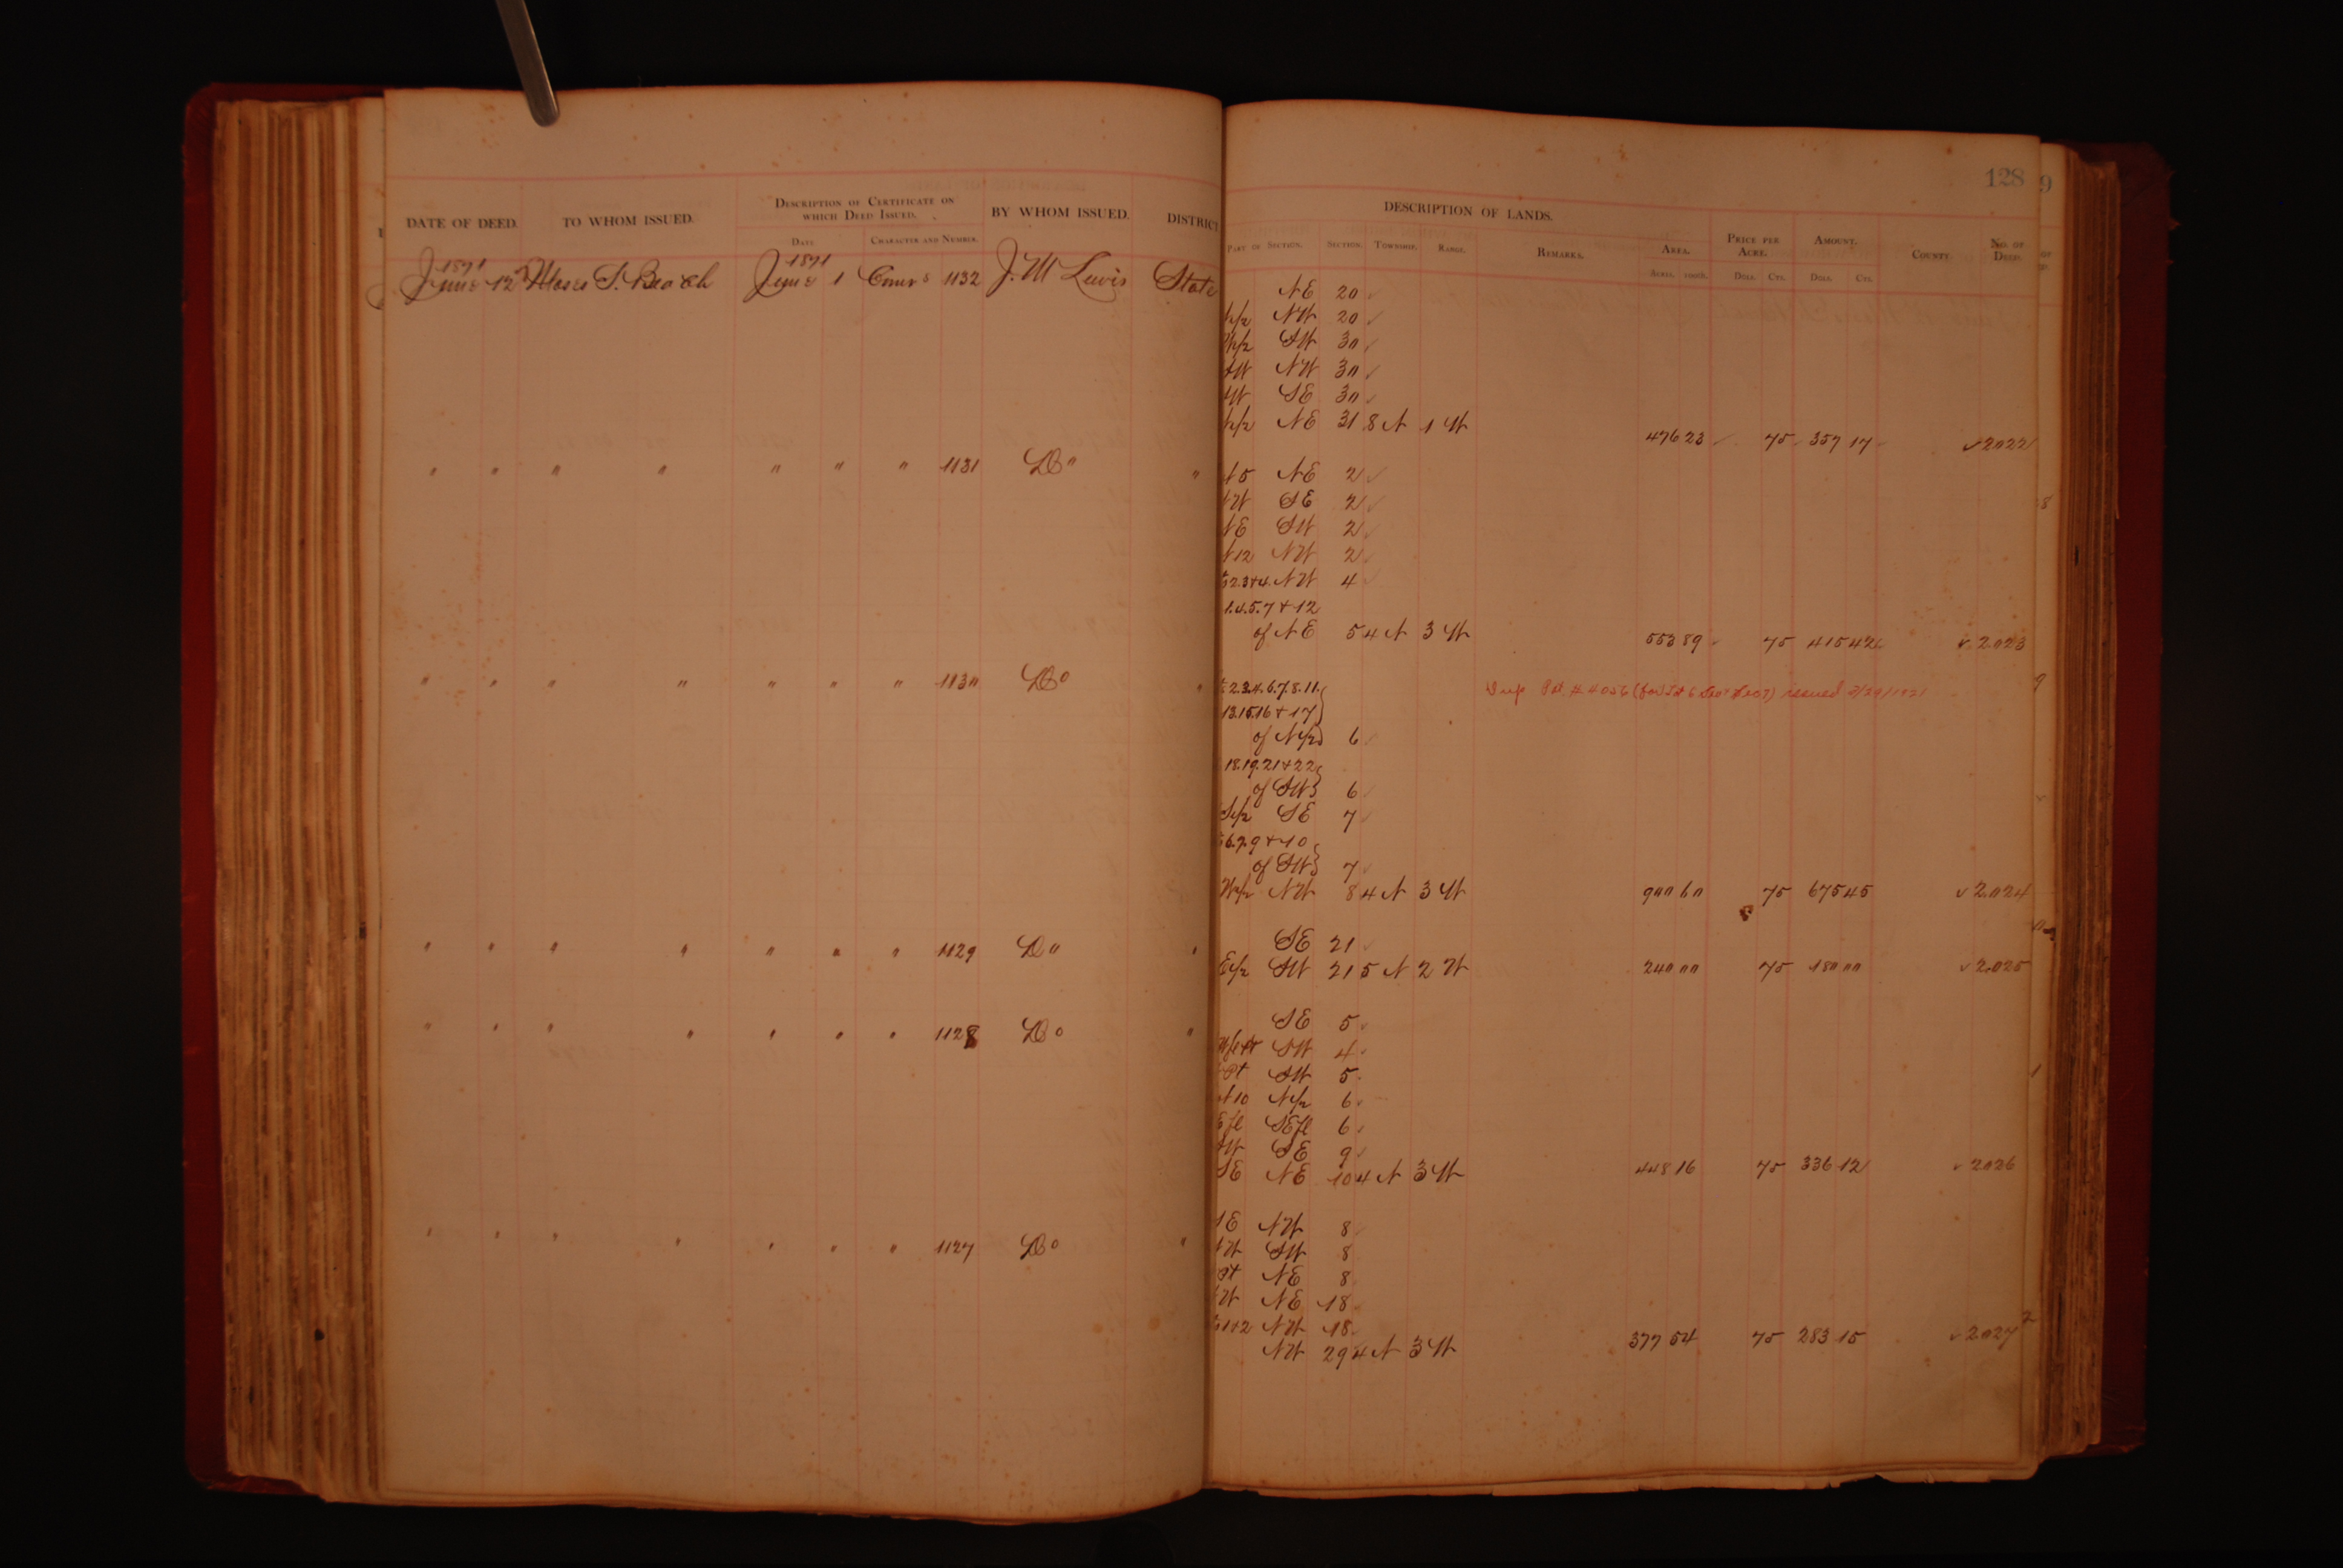 128
9
DATE OF DEED. TO WHOM ISSUED. DESCRIPTION OF CERTIFICATE ON WHICH DEED ISSUED. BY WHOM ISSUED. DISTRICT
DATE CHARACTER AND NUMBER.
DESCRIPTION OF LANDS.
PART OF SECTION. SECTION. TOWNSHIP. RANGE. REMARKS. AREA. PRICE PER ACRE. AMOUNT. COUNTY NO. OF DEED.
ACRES. 100TH. DOLL. CTS. DOLL. CTS.
1871 1871
June 12 Moses S. Beach June 1 Comrs 1132 J. M Lewis State
NE 20 ✓
NW 20 ✓
SW 30 ✓
SW NW 30 ✓
SE 30 ✓
NE 31 8 N 1 W 476 23 ✓ 75 357 17 ✓ 2022
" " " " " " " 1131 Do "
NE 2 ✓
SE 2 ✓
NE SW 2 ✓
12 NW 2 ✓
2.3+4. NW 4 ✓
1.4.5.7 + 12
of NE 5 4 N 3 W 553 89 ✓ 75 415 42 ✓ 2023
" " " " " " " 1130 Do "
2.3.4.6.7.8.11. Dup Pat. # 4056 (for Lot 6 issued 3/29/1921
13.15.16 + 17
of N 1/2 6 ✓
18.19.21 + 22
of SW 6 ✓
S 1/2 SE 7 ✓
6.7.9 + 10
of SW 7 ✓
W 1/2 NW 8 4 N 3 W 900 60 75 675 45 ✓ 2024
" " " " " " " 1129 Do "
SE 21 ✓
E 1/2 SW 21 5 N 2 W 240 00 75 180 00 ✓ 2025
" " " " " " " 1128 Do "
SE 5 ✓
SW 4
Pt SW 5
10 N 1/2 6 ✓
E fl SE fl 6 ✓
SW SE 9 ✓
SE NE 10 4 N 3 W 448 16 75 336 12 ✓ 2026
" " " " " " " 1127 Do "
NW 8
SW 8
Pt NE 8
NE 18
1+2 NW 18
NW 29 4 N 3 W 377 54 75 283 15 ✓ 2027